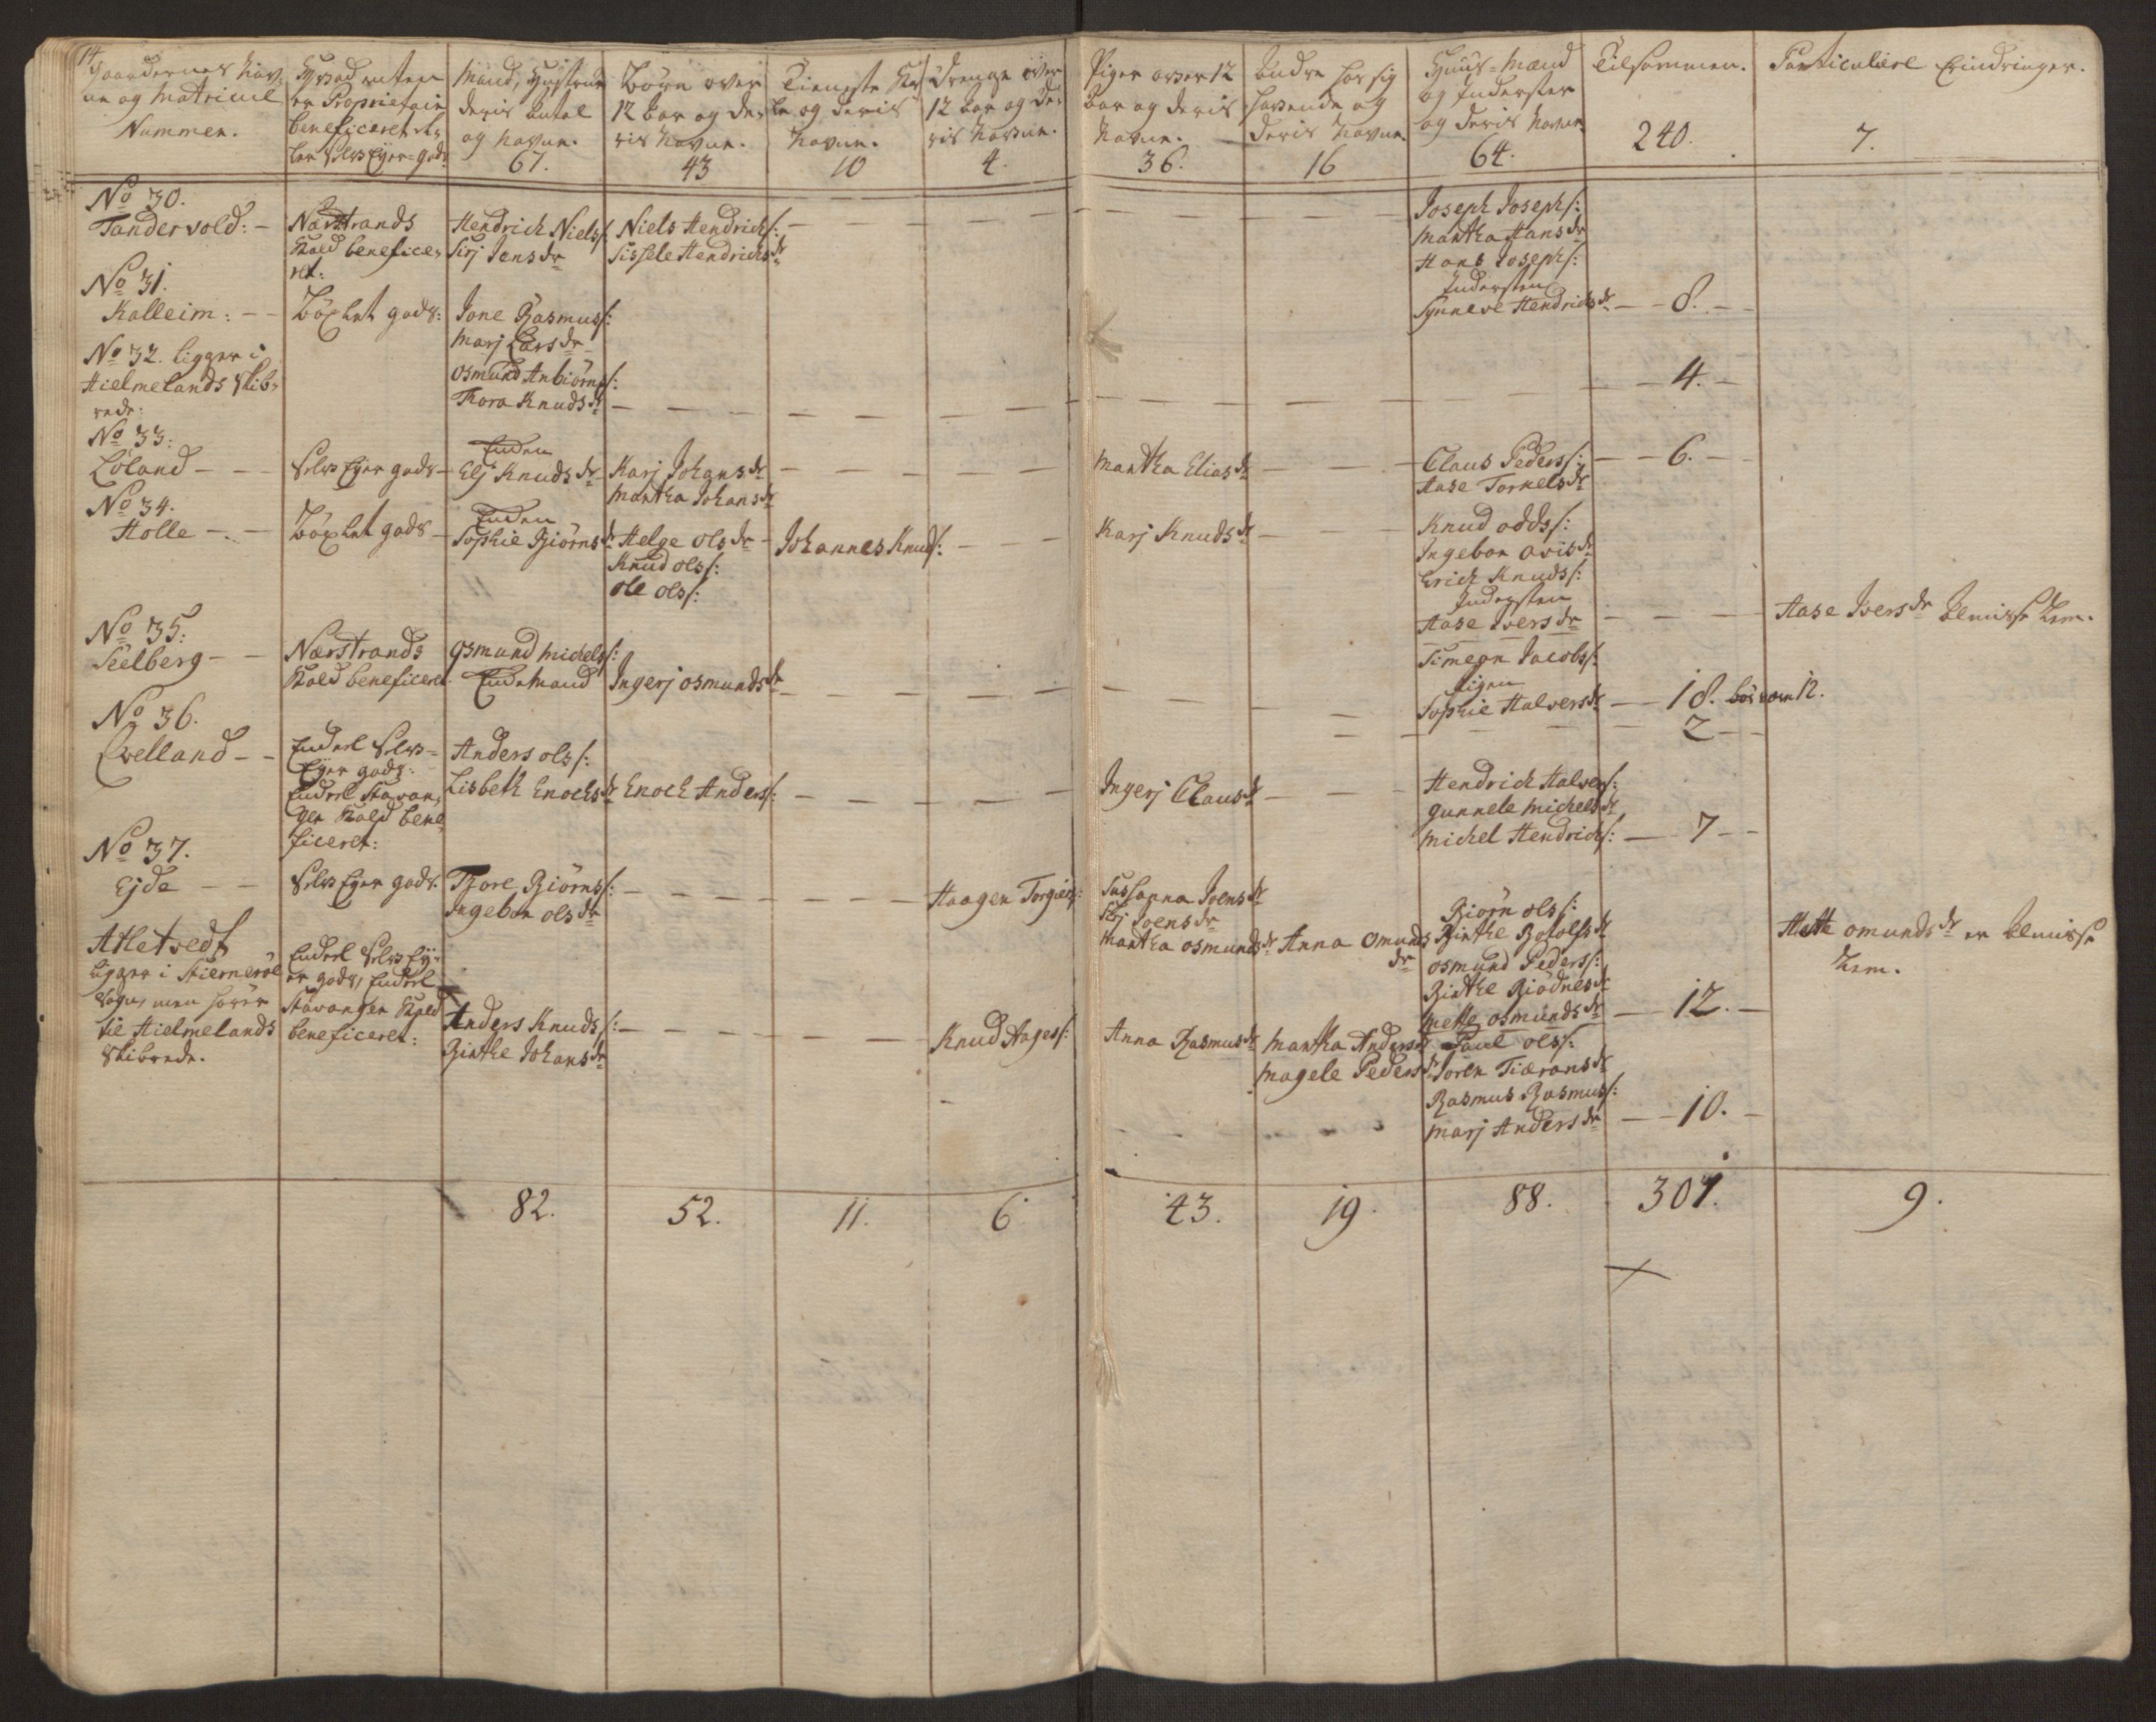 14
Gaardernes Nav-
ne og Matricul
Nummer.
Hvad enten
er Proprietair
beneficeret el-
ler Selv Eyer-gods
Mand, Hustrue
deris Antal
og Navne.
67.
Börn over
12 Aar og de-
ris Navne.
43
Tieneste Ka-
le og deris
Navne.
10
Drenge over
12 Aar og de-
ris Navne.
4.
Piger over 12
Aar og deris
Navne.
36.
Andre hos sig
havende og
deris Navne.
16
Huus-Mænd
og Inderster
og deris Navne
64.
Tilsammen.
240.
Particuliere Erindringer.
7.
No 30.
Tandervold: -
Nærstrands
Kald benefice-
ret:
Hendrich Niels/:
Siri Jens dr
Niels Hendrich/:
Sissele Hendrichs dr
Joseph Joseph/:
Martha Hans dr
Hans Joseph/:
Inderster
Synneve Hendrichs dr - - 8. -
No 31.
Kalleim: - -
Böxlet gods:
Jone Rasmus/:
Marj Lars dr
Osmund Anbiörns/:
Thora Knuds dr
- 4. -
No 32. ligger i
Hielmelands Skib-
rede:
No 33:
Löland - -
Selv Eyer gods -
Enken
Elj Knuds dr
Karj Johans dr
Martha Johans dr
Martha Elias dr
Claus Peders/: - - 6. -
Aase Torkels dr
No 34.
Holle - . -
Böxlet gods -
Enken
Sophie Biörns dr
Helge Ols dr -
Knud Ols/:
Ole Ols/:
Johannes Knud/:
Karj Knuds dr
Knud Odds/:
Ingebor Avis dr
Erich Knuds/:
Inderster
Aase Ivers dr
Simeon Jacobs/:
Pigen
Sophie Halvers dr - - 18. bör være 12.
Aase Ivers dr Almisse Lem.
No 35:
Sielberg - -
Nærstrands
Kald beneficeret
Osmund Michels/:
Enkemand
Ingerj Osmunds dr
2 - -
No 36.
Qvelland - -
Endeel Selv-
Eyer gods:
Endeel Stavan-
ger Kald bene-
ficeret:
Anders Ols/:
Lisbeth Enochs dr
Enoch Anders/:
Ingerj Claus dr
Hendrich Halvers/:
Gunnele Michels dr
Michel Hendrich/: - 7 - -
No 37.
Ejde - -
Selv Eyer gods.
Tore Biörns/:
Ingebor Ols dr
Haagen Torgiers/:
Sussanna Jvens dr
Siri Joens dr
Martha Osmunds dr
Anna Omunds
dr
Biörn Ols/:
Birthe Botolfs dr
Osmund Peders/:
Birthe Biödnes dr
Mette Osmunds dr - 12. -
Mette Omunds dr er Almisse
Lem.
Atletvedt
ligger i Stierneröe
Sogn, men hörer
til Hielmelands
Skibrede.
Endeel Selv Ey-
er gods, Endeel
Stavanger Kald
beneficeret:
Anders Knuds/:
Birthe Johans dr
Knud Aages/:
Anna Rasmus dr
Martha Anders dr
Magele Peders dr
Paul Ols/:
Soren Tiærans dr
Rasmus Rasmus/:
Marj Anders dr - - 10. -
82. 52. 11. 6 43. 19. 88. 307. 9.